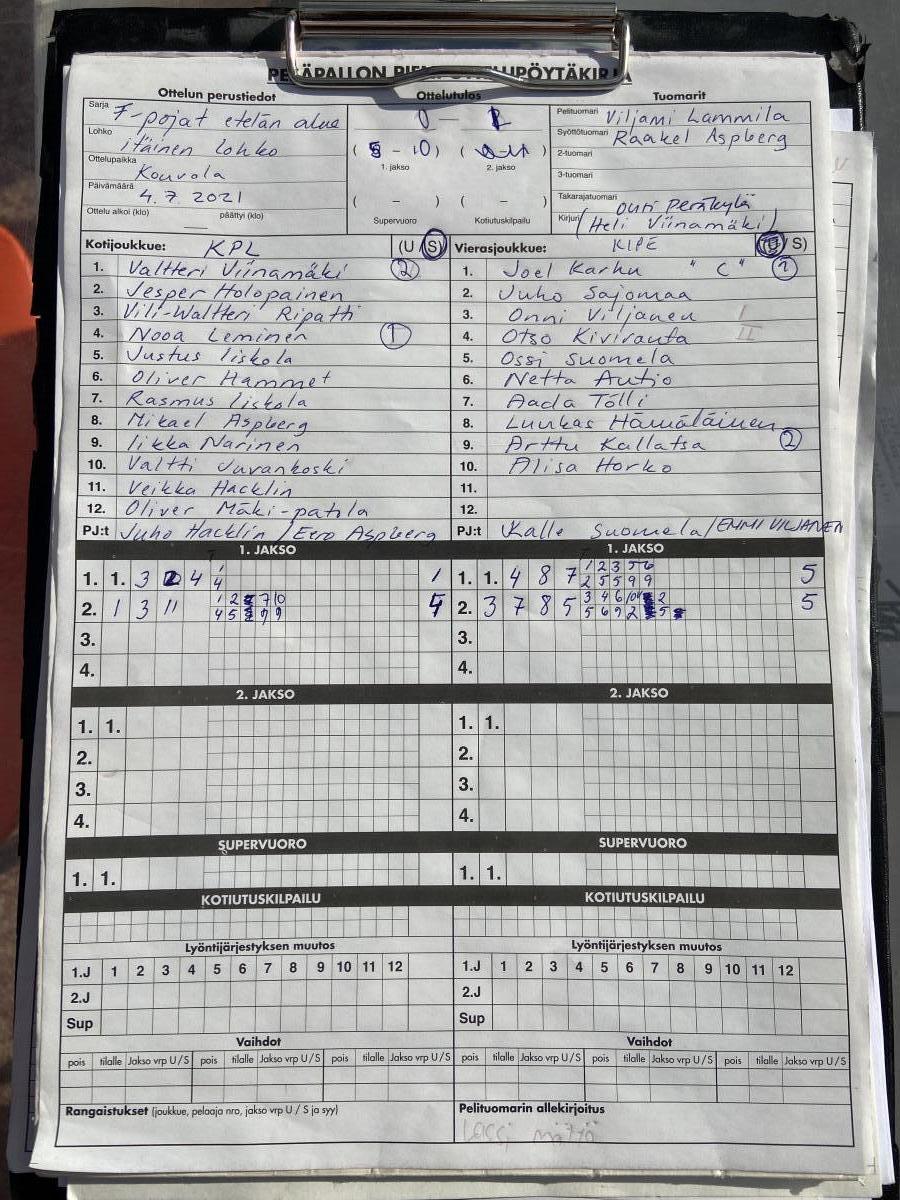 PESÄPALLON PIENPELIPÖYTÄKIRJA
Ottelun perustiedot
Sarja F-pojat etelän alue
Lohko itäinen lohko
Ottelupaikka Kouvola
Päivämäärä 4.7.2021
Ottelu alkoi (klo) päättyi (klo)
Ottelutulos
0 —
( 5 - 10) ( )
1. jakso 2. jakso
( - ) ( - )
Supervuoro Kotiutuskilpailu
Tuomarit
Pelituomari Viljami Lammila
Syöttötuomari Raakel Aspberg
2-tuomari
3-tuomari
Takarajatuomari Outi Peräkylä
Kirjuri (Heli Viinamäki)
Kotijoukkue: KPL (U S)
1. Valtteri Viinamäki 2
2. Jesper Holopainen
3. Vili-Waltteri Ripatti
4. Nooa Leminen 1
5. Justus Iiskola
6. Oliver Hammet
7. Rasmus Iiskola
8. Mikael Aspberg
9. Iikka Narinen
10. Valtti Juvankoski
11. Veikka Hacklin
12. Oliver Mäki-patola
PJ:t Juho Hacklin / Eero Aspberg
Vierasjoukkue: KIPE (U / S)
1. Joel Karhu "C"
2. Juho Sajomaa
3. Onni Viljanen I
4. Otso Kiviranta II
5. Ossi Suomela
6. Netta Autio
7. Aada Tölli
8. Luukas Hämäläinen
9. Arttu Kallatsa 2
10. Alisa Horko
11.
12.
PJ:t Kalle Suomela / EMMI VILJANEN
1. JAKSO
1. 1. 3 2 4 1 1
4
2. 1 3 11 1 2 7 10
4 5 9 9
3.
4.
1. JAKSO
1. 1. 4 8 7 1 2 3 5 6 5
2 5 5 9 9
2. 3 7 8 5 3 4 6 10 2 5
5 6 9 2 5
3.
4.
2. JAKSO
1. 1.
2.
3.
4.
2. JAKSO
1. 1.
2.
3.
4.
SUPERVUORO
1. 1.
SUPERVUORO
1. 1.
KOTIUTUSKILPAILU
KOTIUTUSKILPAILU
Lyöntijärjestyksen muutos
1.J 1 2 3 4 5 6 7 8 9 10 11 12
2.J
Sup
Lyöntijärjestyksen muutos
1.J 1 2 3 4 5 6 7 8 9 10 11 12
2.J
Sup
Vaihdot
pois tilalle Jakso vrp U/S pois tilalle Jakso vrp U/S pois tilalle Jakso vrp U/S
Vaihdot
pois tilalle Jakso vrp U/S pois tilalle Jakso vrp U/S pois tilalle Jakso vrp U/S
Rangaistukset (joukkue, pelaaja nro, jakso vrp U / S ja syy)
Pelituomarin allekirjoitus